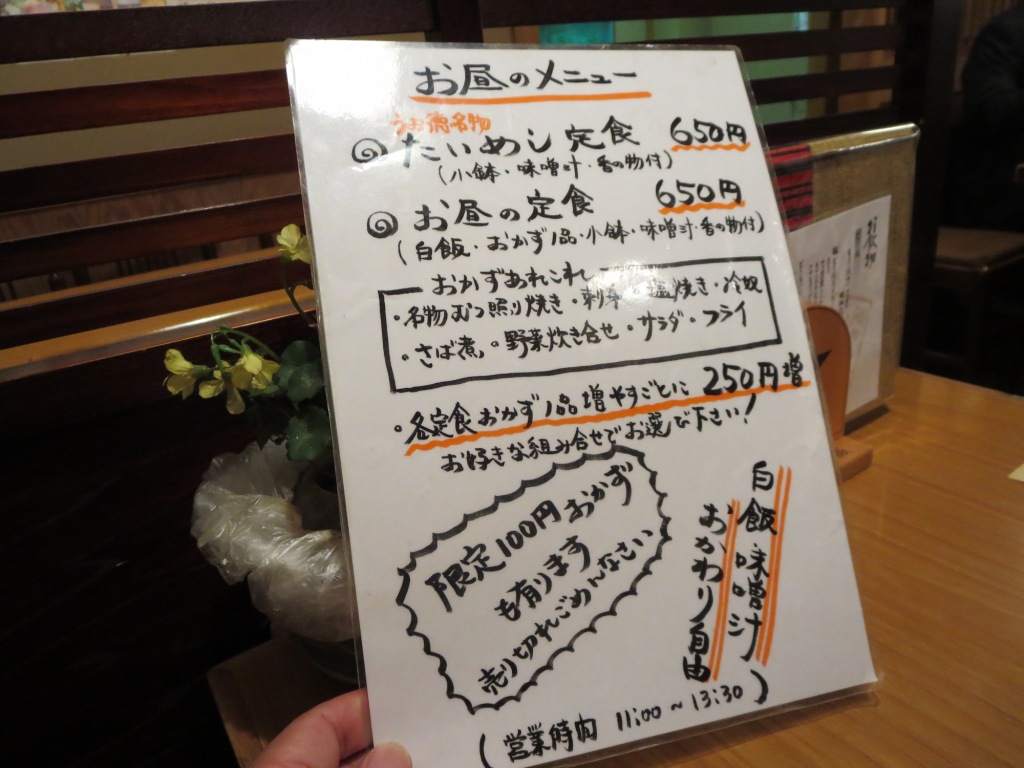 お昼のメニュー
うお徳名物
たいめし定食 650円
(小鉢・味噌汁・香の物付)
お昼の定食 650円
(白飯・おかず1品・小鉢・味噌汁・香の物付)
おかずあれこれ
・名物むつ照り焼き・刺身・塩焼き・冷奴
・さば煮・野菜炊き合せ・サラダ・フライ
・各定食おかず1品増やすごとに250円増
お好きな組み合せでお選び下さい!
限定100円おかず
も有ります
売り切れごめんなさい
白飯味噌汁
おかわり自由
(営業時間 11:00~13:30)
お飲物